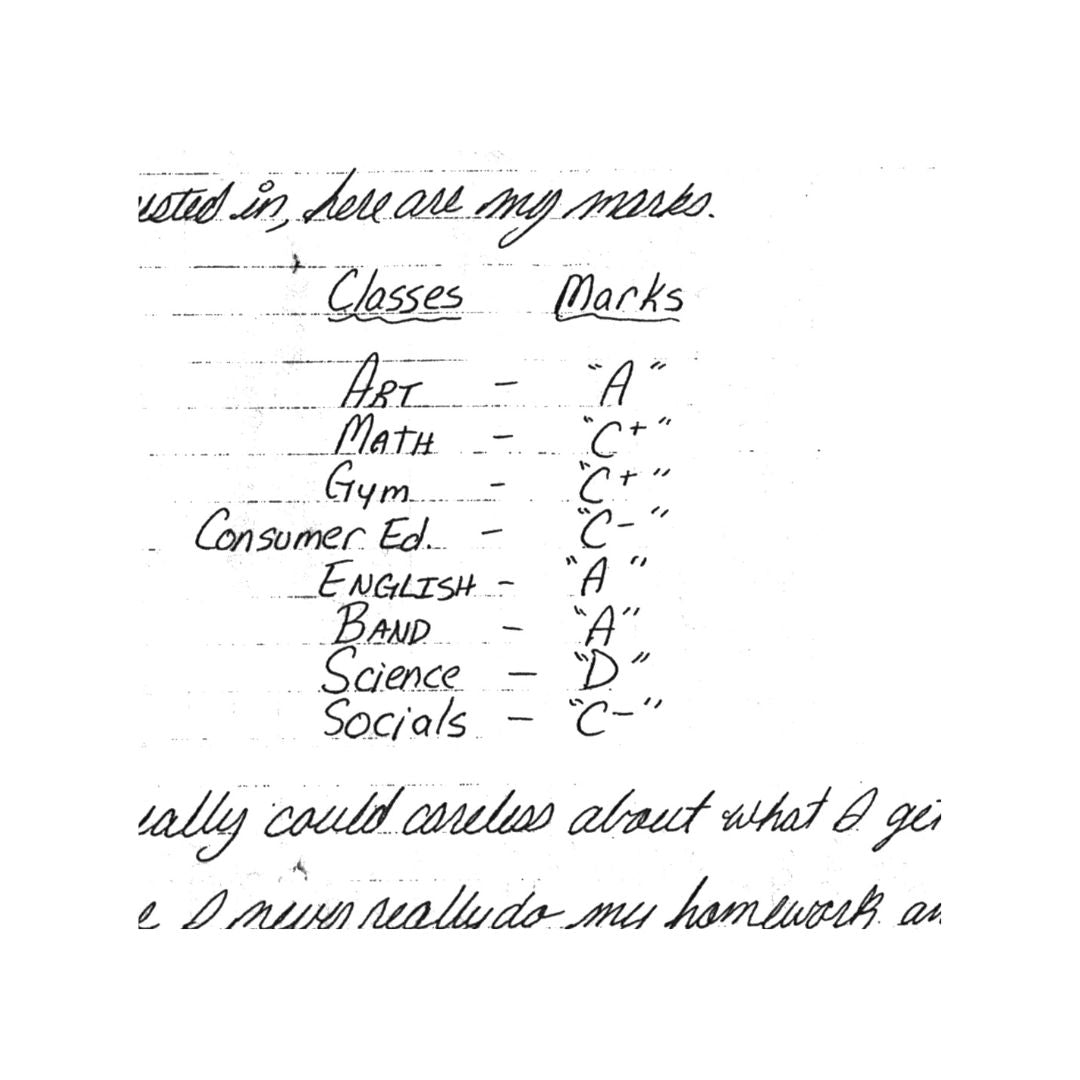 in, here are my marks.
Classes Marks
ART - "A"
MATH - "C+"
Gym - "C+"
Consumer Ed. - "C-"
ENGLISH - "A"
BAND - "A"
Science - "D"
Socials - "C-"
could careless about what I
I never really do my homework